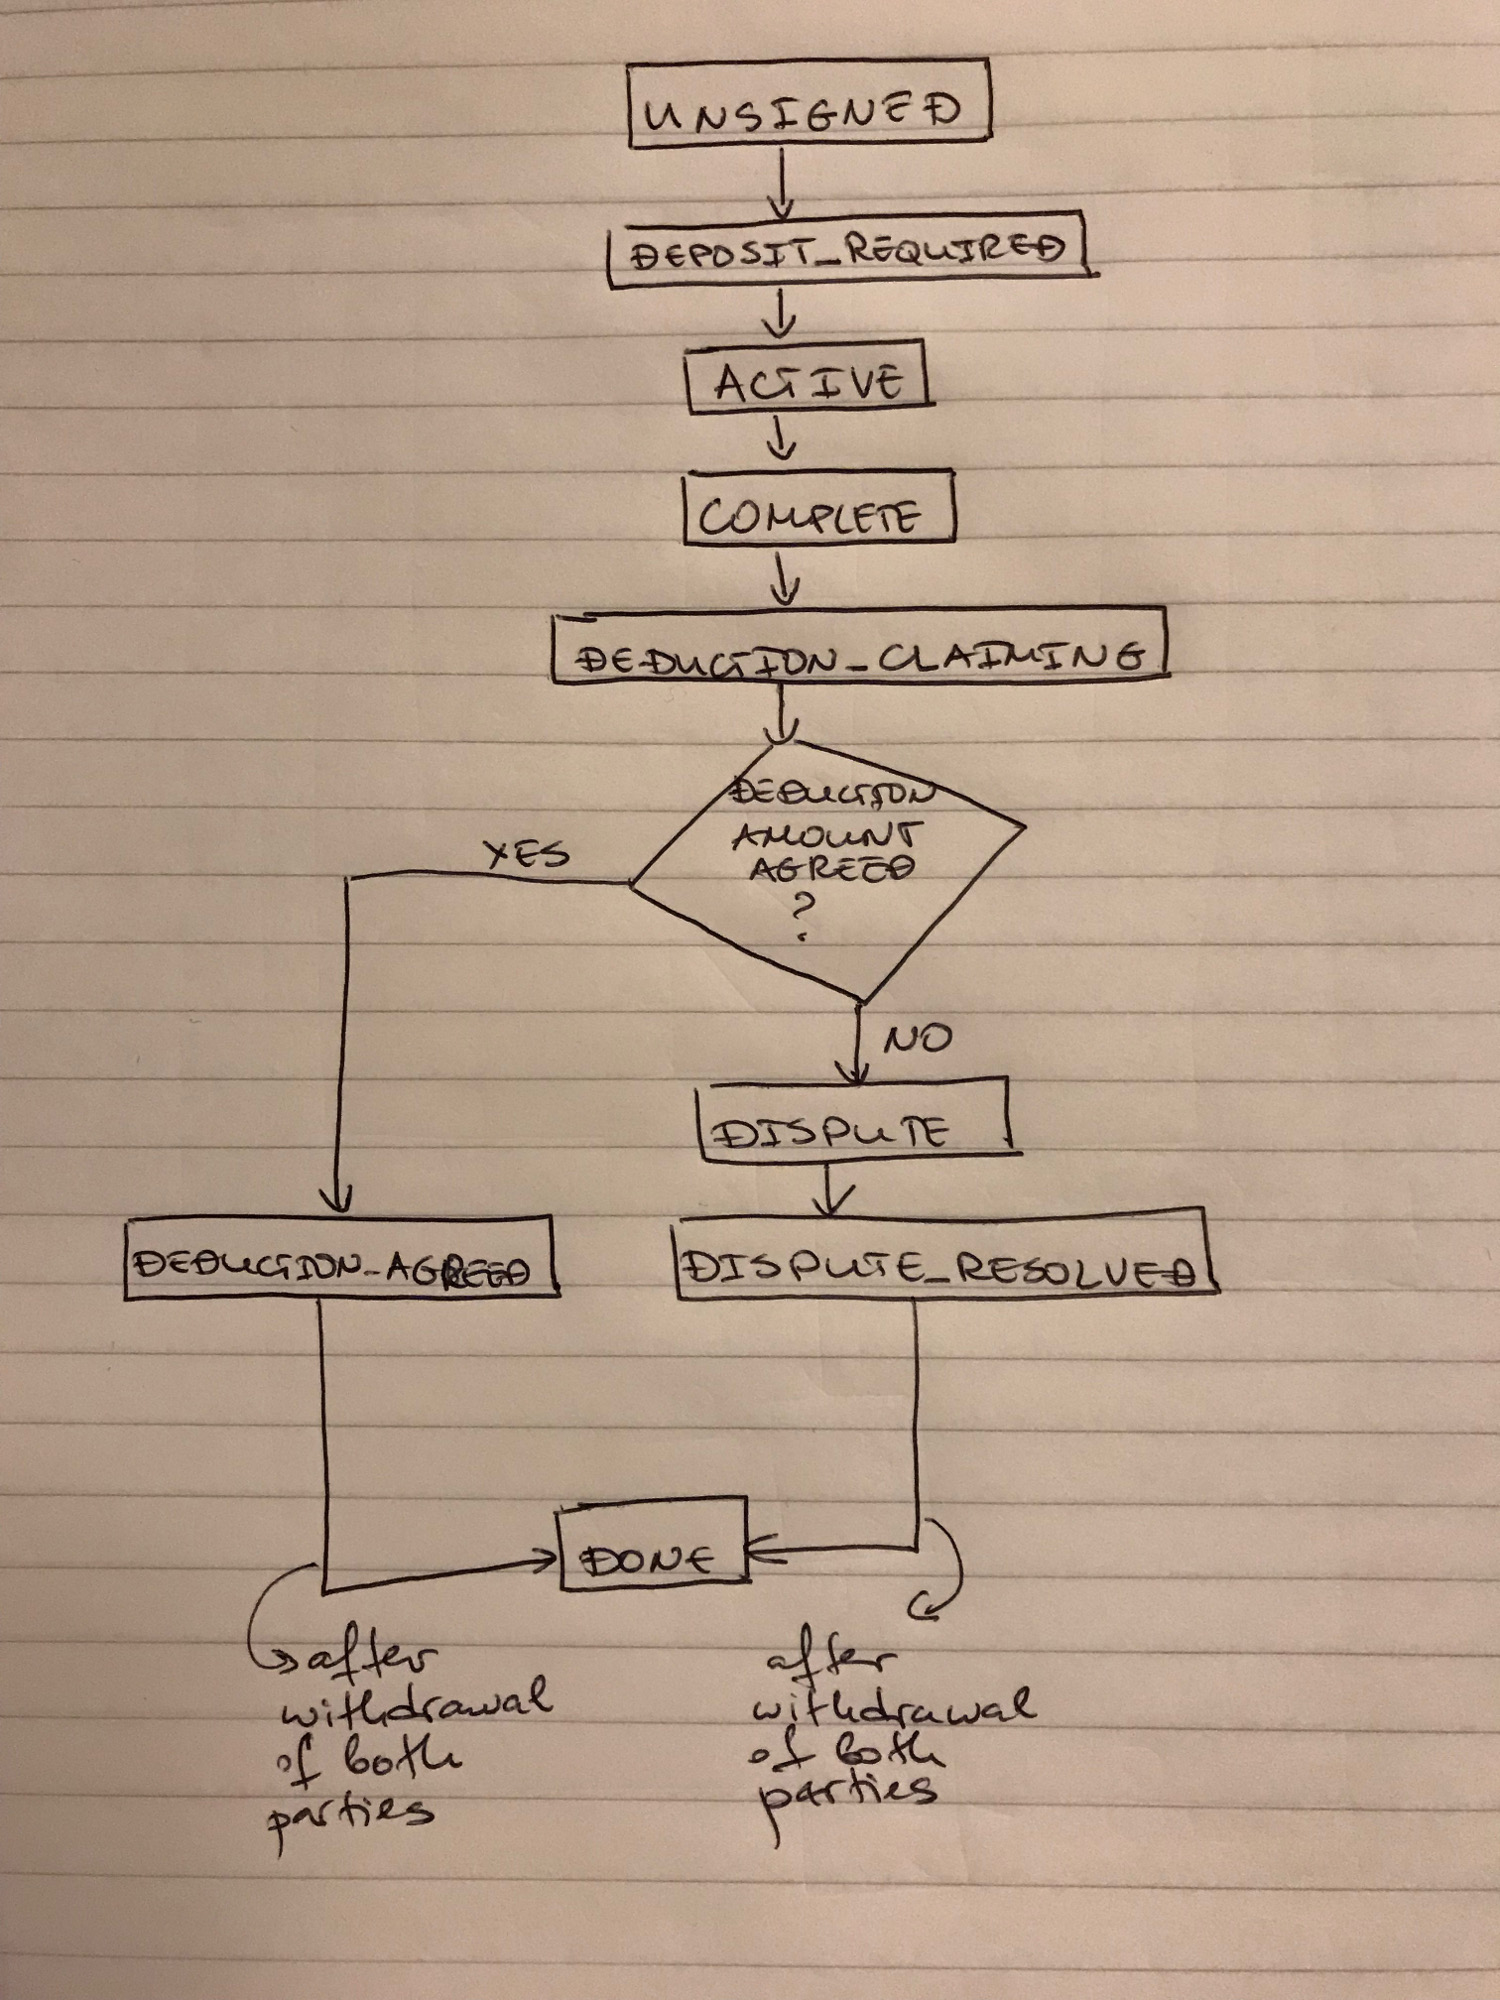 UNSIGNED
DEPOSIT_REQUIRED
ACTIVE
COMPLETE
DEDUCTION_CLAIMING
DEDUCTION
AMOUNT
AGREED
?
YES
NO
DISPUTE
DEDUCTION_AGREED
DISPUTE_RESOLVED
DONE
after
withdrawal
of both
parties
after
withdrawal
of both
parties